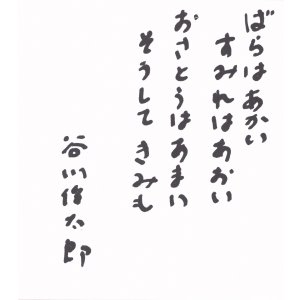 ばらはあかい
すみれはあおい
おさとうはあまい
そうして きみも
谷川俊太郎